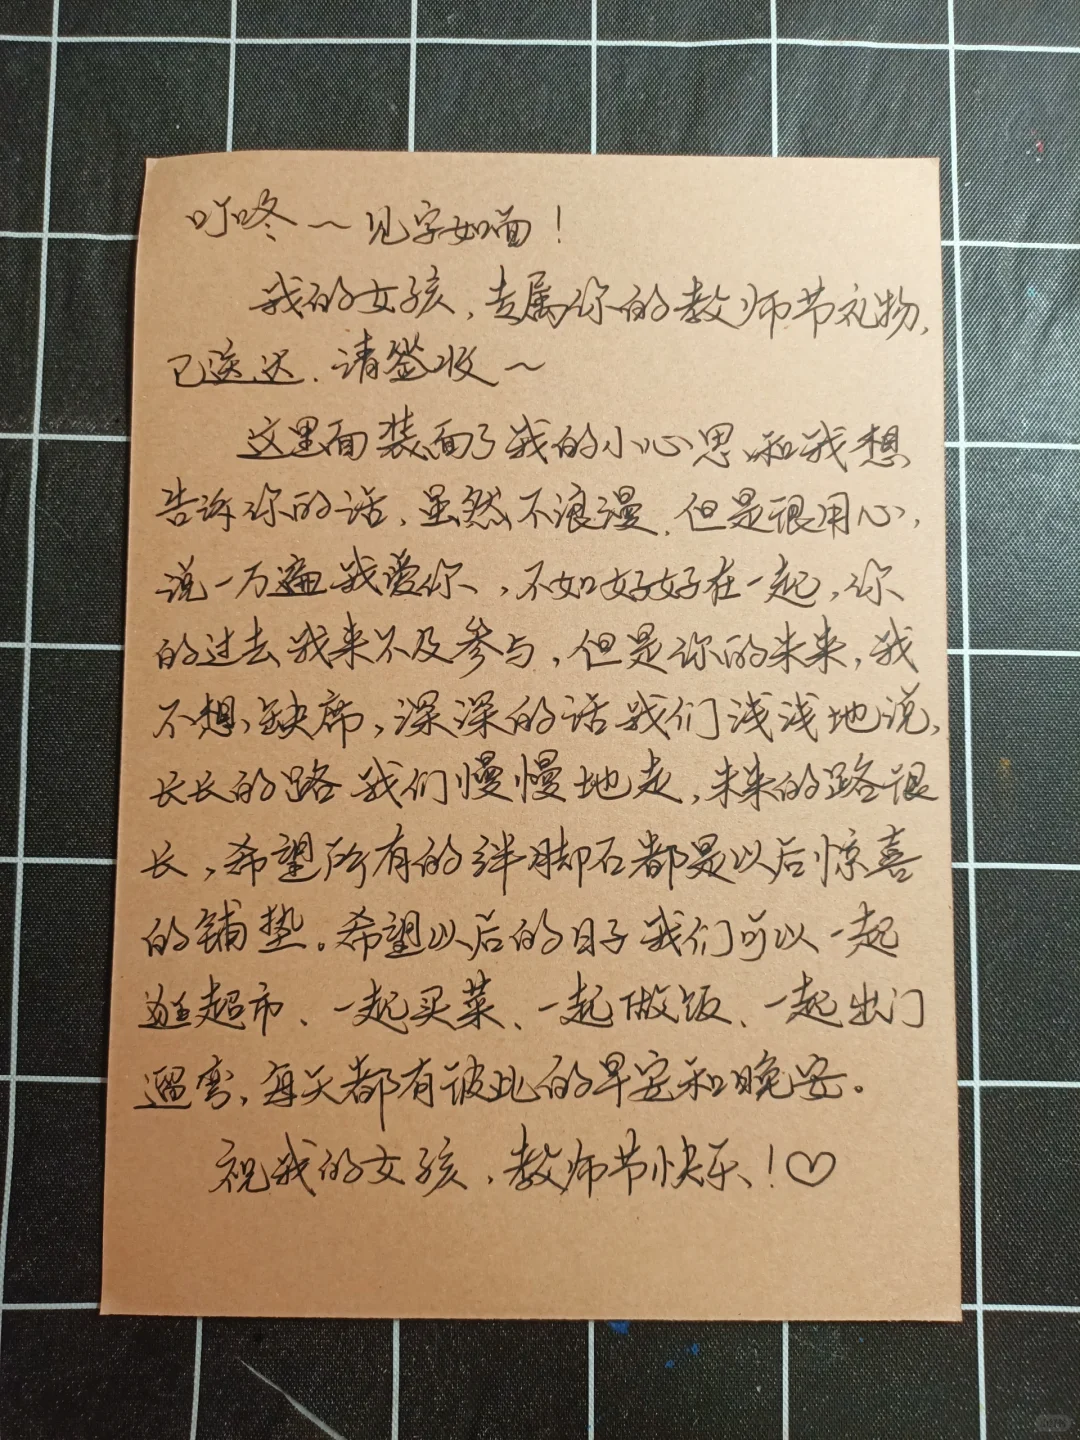 叮咚～见字如面！
我的女孩，专属你的教师节礼物，
已送达．请签收～
这里面装面了我的小心思和我想
告诉你的话，虽然不浪漫，但是很用心，
说一万遍我爱你、，不如好好在一起，你
的过去我来不及参与，但是你的未来，我
不想缺席，深深的话我们浅浅地说，
长长的路我们慢慢地走，未来的路很
长，希望所有的绊脚石都是以后惊喜
的铺垫。希望以后的日子我们可以一起
逛超市、一起买菜、一起做饭、一起出门
遛弯，每天都有彼此的早安和晚安。
祝我的女孩，教师节快乐！♡